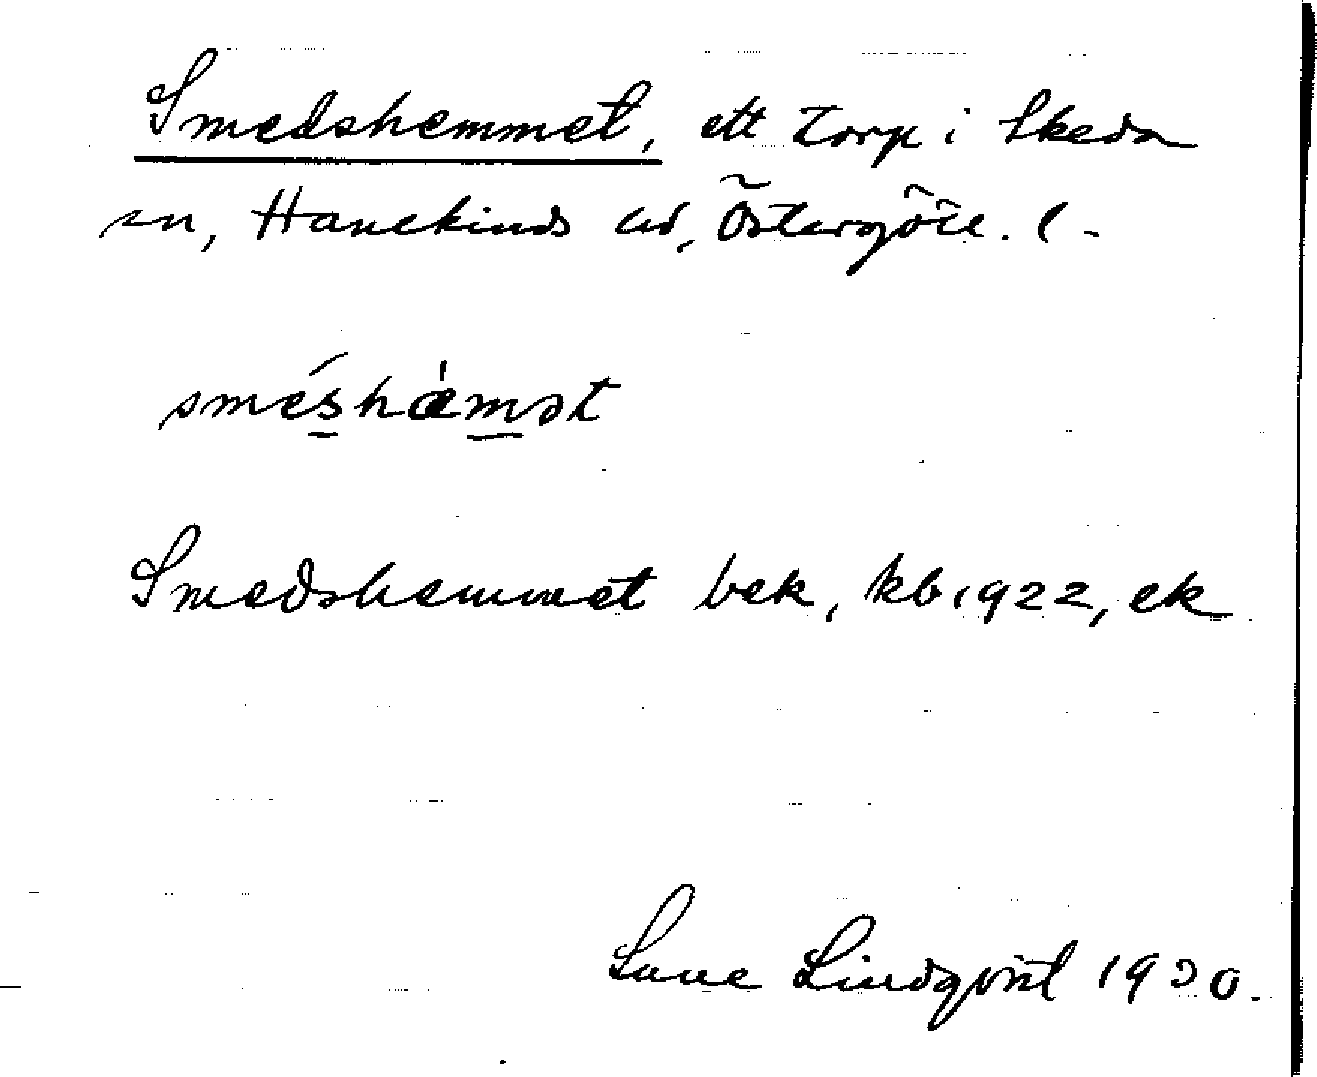 Smedshemmet, ett torp i Skeda
sn, Hanekinds hd, Östergötl. l.
sméshæ̀mət
Smedshemmet bek, kb 1922, ek
Sune Lindqvist 1930.